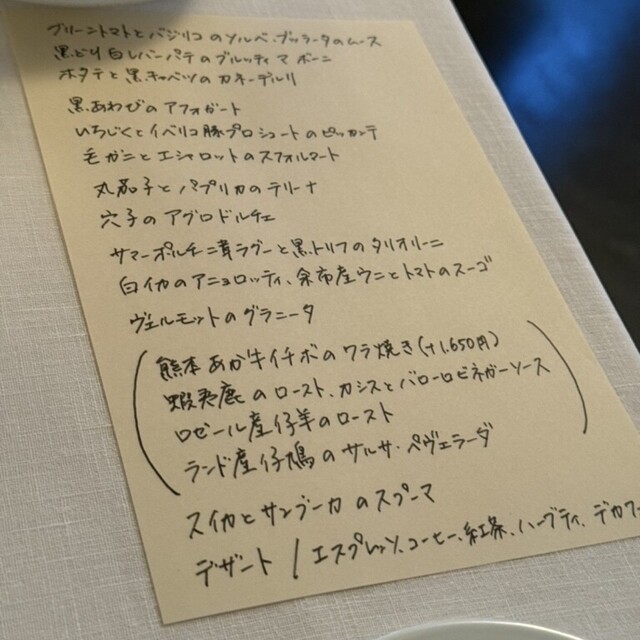 グリーントマトとバジリコのソルベ、ブッラータのムース
黒どり白レバーパテのブルッティ マ ボーニ
ホタテと黒キャベツのカネーデルリ
黒あわびのアフォガート
いちじくとイベリコ豚プロシュートのピッカンテ
毛ガニとエシャロットのスフォルマート
丸茄子とパプリカのテリーナ
穴子のアグロドルチェ
サマーポルチーニ茸ラグーと黒トリフのタリオリーニ
白イカのアニョロッティ、余市産ウニとトマトのスーゴ
ヴェルモットのグラニータ
熊本あか牛イチボのワラ焼き(+1,650円)
蝦夷鹿のロースト、カシスとバローロビネガーソース
ロゼール産仔羊のロースト
ランド産仔鳩のサルサ・ペヴェラーダ
スイカとサンブーカのスプーマ
デザート / エスプレッソ、コーヒー、紅茶、ハーブティ、デカフェ